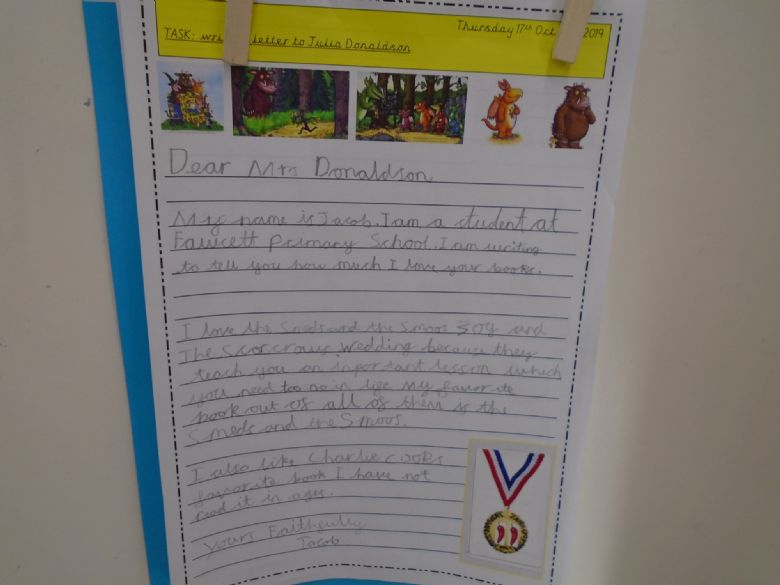 Thursday 17th Oct 2019
TASK: wri letter to Julia Donaldson
Dear Mrs Donaldson
My name is Jacob. I am a student at
Fawcett Primary School. I am writing
to tell you how much I love your books.
I love the Smeds and the Smoos zog and
The Scarcrows wedding because they
teach you an inportant lesson which
you need to no in life My favorite
book out of all of them is the
Smeds and the Smoos.
I also like Charlie cooks
favorite book I have not
read it in ages.
Yours Faithfully
Jacob